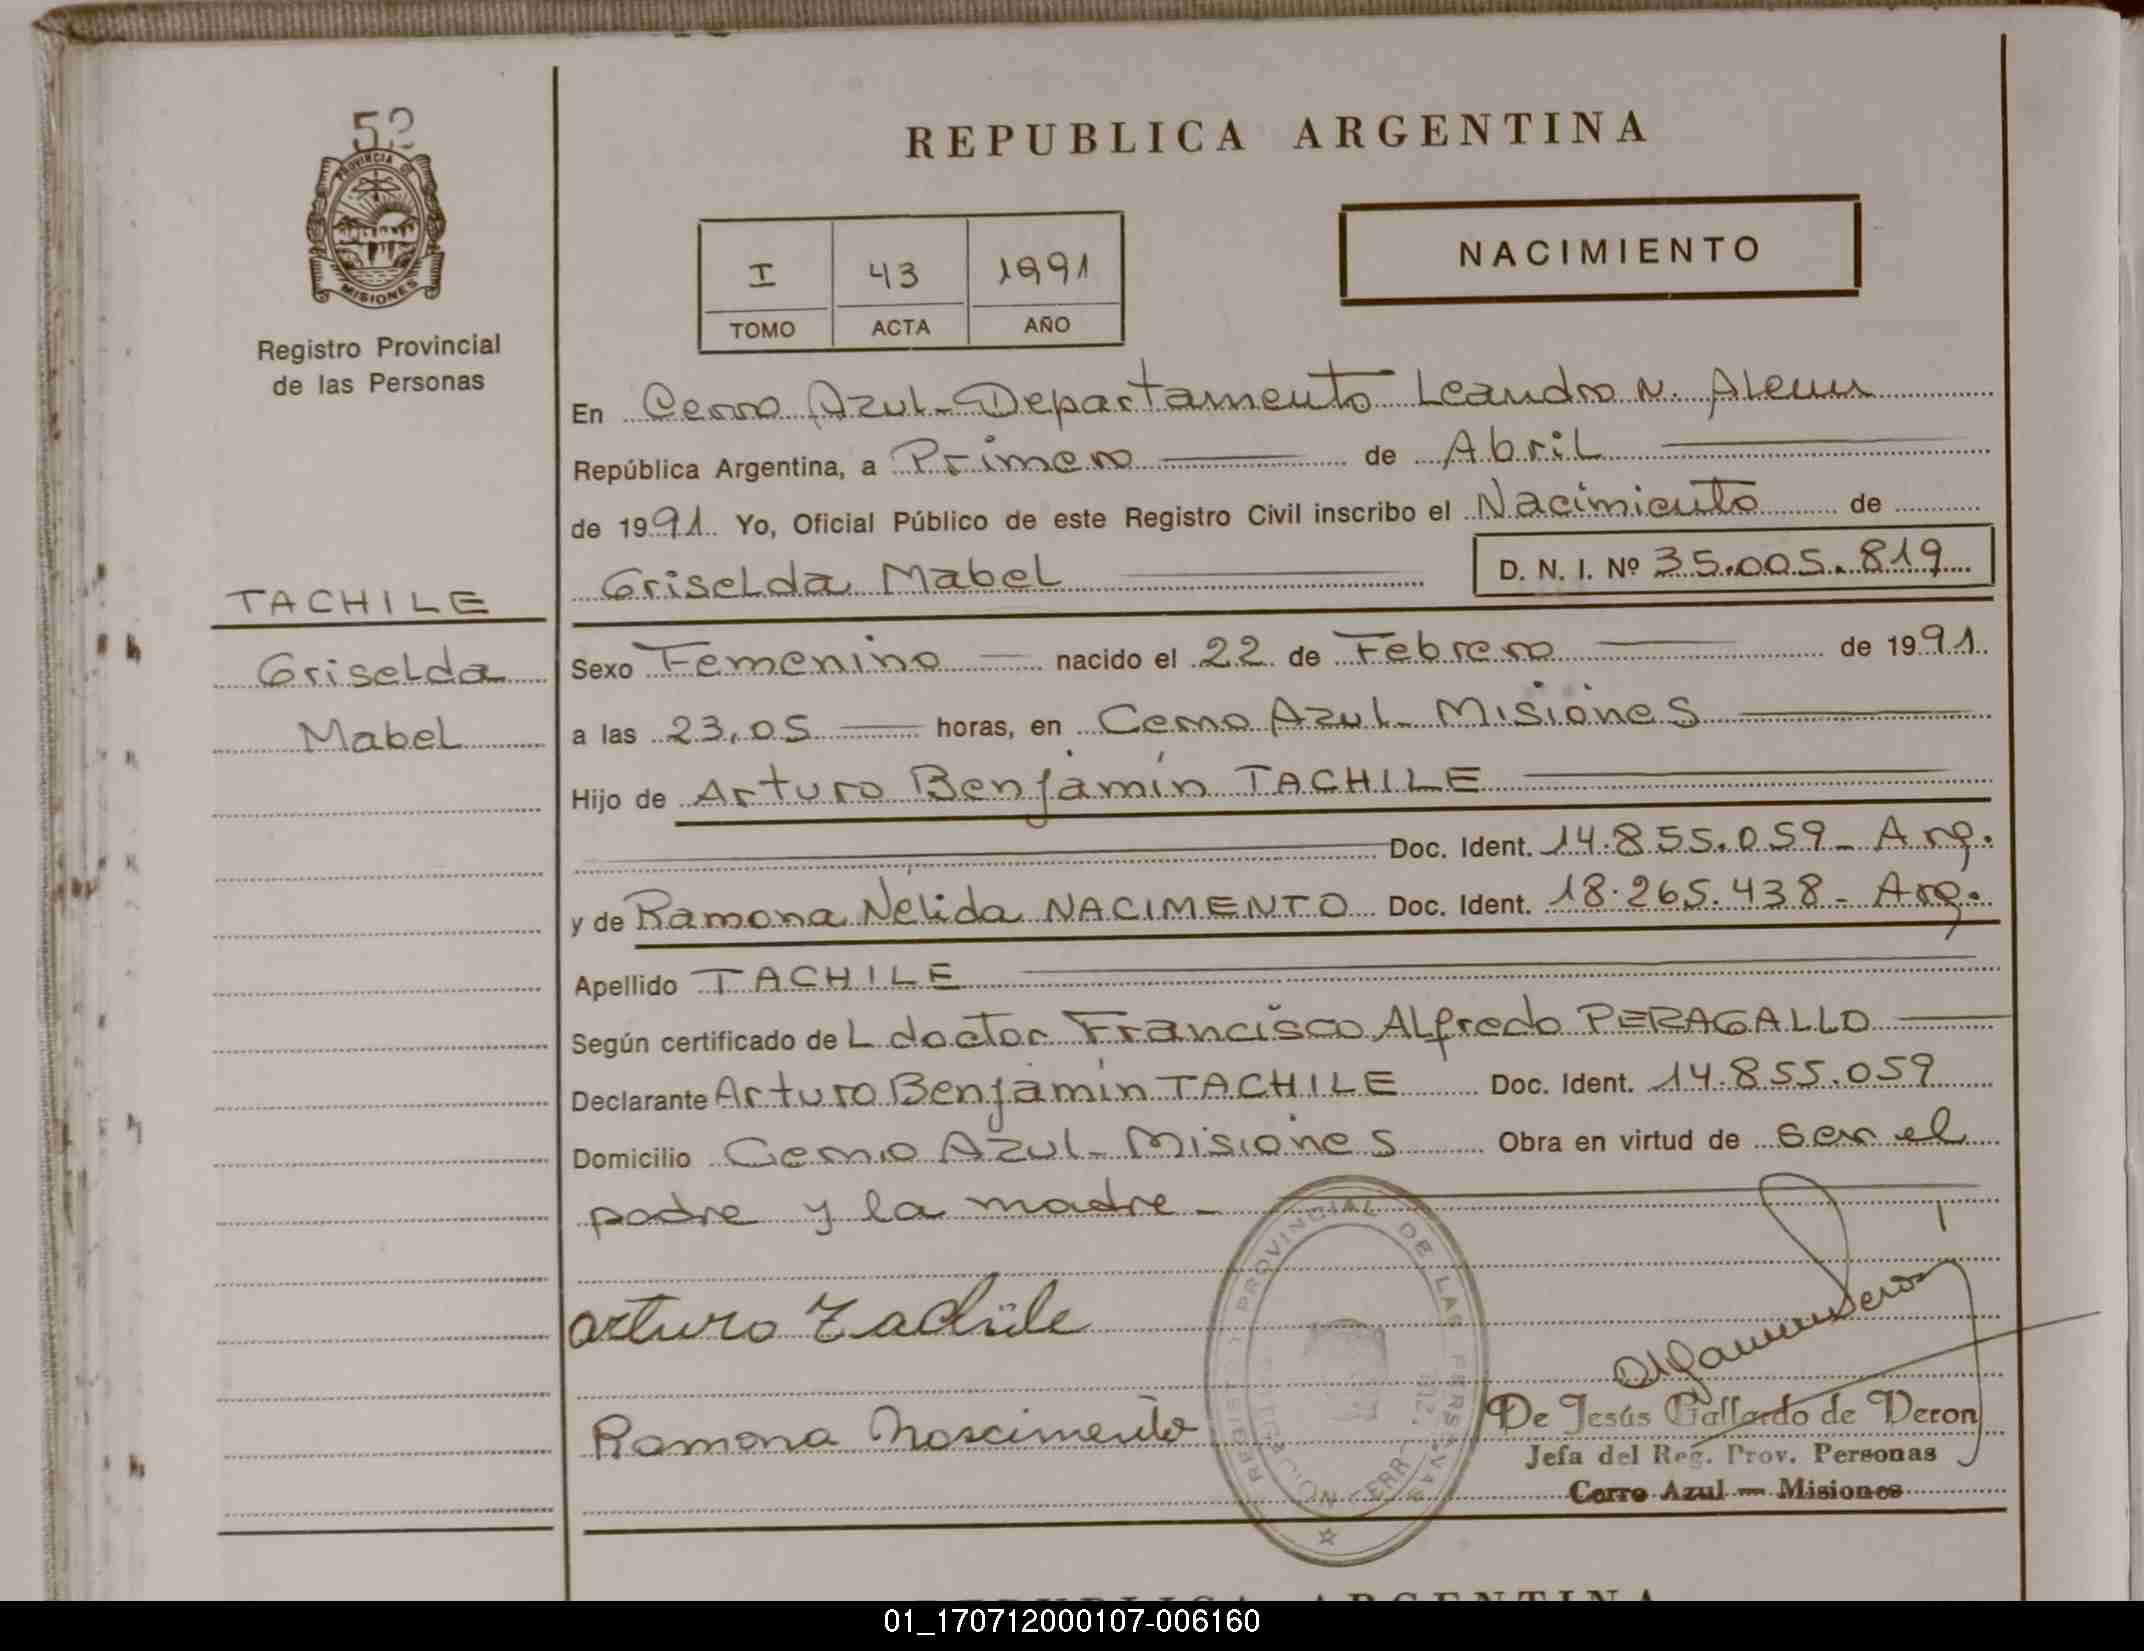 52
PROVINCIA DE
MISIONES
Registro Provincial
de las Personas
REPUBLICA ARGENTINA
NACIMIENTO
I 43 1991
TOMO ACTA AÑO
En Cerro Azul - Departamento Leandro N. Alem
República Argentina, a Primero de Abril
de 1991. Yo, Oficial Público de este Registro Civil inscribo el Nacimiento de
Griselda Mabel D. N. I. Nº 35.005.819
TACHILE
Griselda
Mabel
Sexo Femenino nacido el 22 de Febrero de 1991.
a las 23,05 horas, en Cerro Azul - Misiones
Hijo de Arturo Benjamín TACHILE
Doc. Ident. 14.855.059 - Arg.
y de Ramona Nélida NACIMENTO Doc. Ident. 18.265.438 - Arg.
Apellido TACHILE
Según certificado de L doctor Francisco Alfredo PERAGALLO
Declarante Arturo Benjamín TACHILE Doc. Ident. 14.855.059
Domicilio Cerro Azul - Misiones Obra en virtud de ser el
padre y la madre -
Arturo Tachile
Ramona Nascimento
REGISTRO PROVINCIAL DE LAS PERSONAS
De Jesús Gallardo de Veron
Jefa del Reg. Prov. Personas
Cerro Azul — Misiones
REPUBLICA ARGENTINA
01_170712000107-006160